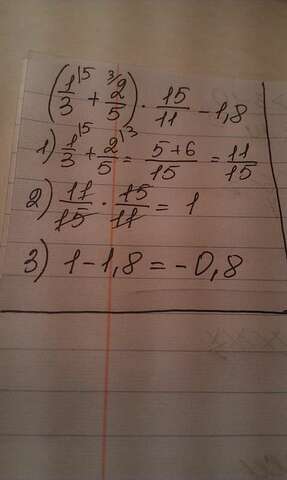 (1/3 |5 + 3/ 2/5) · 15/11 - 1,8
1) 1/3 |5 + 2/5 |3 = 5+6/15 = 11/15
2) 11/15 · 15/11 = 1
3) 1 - 1,8 = -0,8